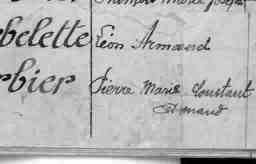 belette Léon Armand
bier Pierre Marie Constant
Armand